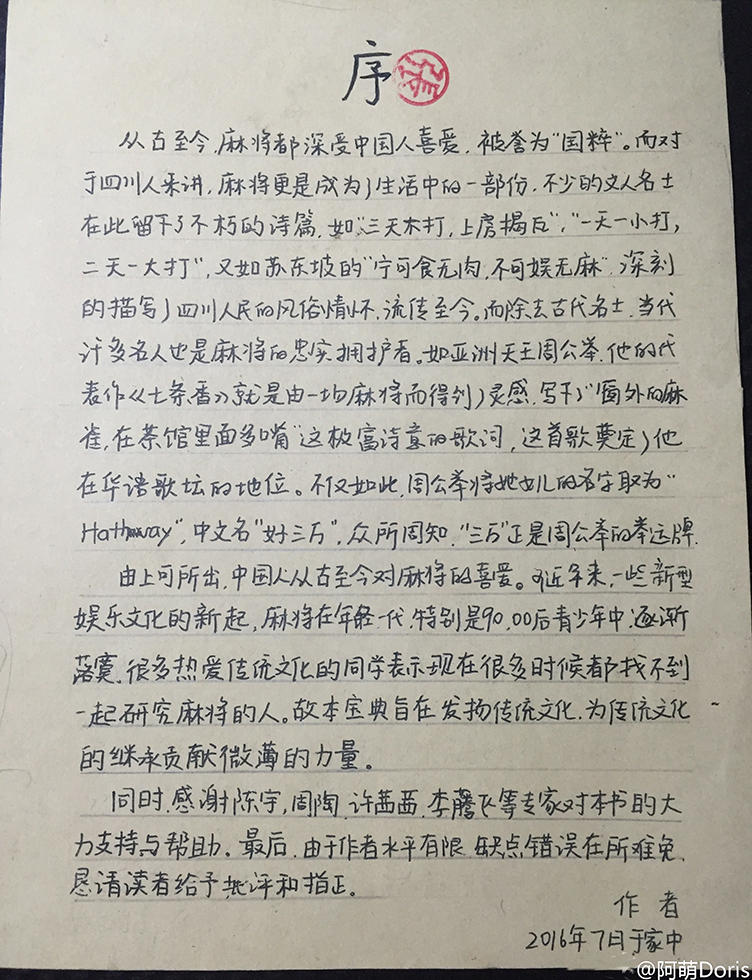 序
从古至今,麻将都深受中国人喜爱,被誉为"国粹"。而对
于四川人来讲,麻将更是成为了生活中的一部份,不少的文人名士
在此留下了不朽的诗篇,如"三天不打,上房揭瓦","一天一小打,
二天一大打",又如苏东坡的"宁可食无肉,不可娱无麻",深刻
的描写了四川人民的风俗情怀,流传至今。而除去古代名士,当代
许多名人也是麻将的忠实拥护者。如亚洲天王周公举,他的代
表作《七条香》就是由一场麻将而得到了灵感,写下了"窗外的麻
雀,在茶馆里面多嘴"这极富诗意的歌词,这首歌奠定了他
在华语歌坛的地位。不仅如此,周公举将她女儿的名字取为"
Hathaway",中文名"好三万",众所周知,"三万"正是周公举的幸运牌.
由上可所出,中国人从古至今对麻将的喜爱。可近年来,一些新型
娱乐文化的新起,麻将在年轻一代,特别是90,00后青少年中,逐渐
落寞,很多热爱传统文化的同学表示现在很多时候都找不到
一起研究麻将的人。故本宝典旨在发扬传统文化,为传统文化
的继承贡献微薄的力量。
同时,感谢陈宇,周陶,许茜茜,李腾飞等专家对本书的大
力支持与帮助。最后,由于作者水平有限,缺点错误在所难免,
恳请读者给予批评和指正。
作者
2016年7月于家中
@阿萌Doris